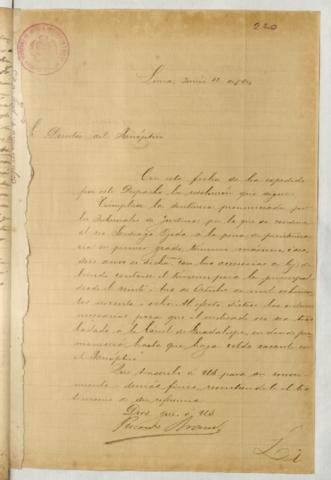 220
Lima, Junio
S. Director del Panóptico
Con esta fecha se ha expedido
por este Despacho la resolución que sigue:
"Cumplase la sentencia pronunciada por
los Tribunales de Justicia por la que se condena
al reo Santiago Ojeda a la pena de penitencia
ria en primer grado, término máximo, o sea
seis años de dicha, con las accesorias de ley, de
biendo contarse el término para la principal
desde el veinte i tres de Octubre de mil ochocien
tos noventa i ocho. Al efecto díctese las órdenes
necesarias para que el indicado reo sea tras
ladado a la Carcel de Guadalupe, en donde per
manecerá hasta que haya celda vacante en
el Panóptico"
Que trascribo á US para su conoci
miento i demás fines, remitiendole el tes
timonio de su referencia
Dios gue. á US
Ricardo